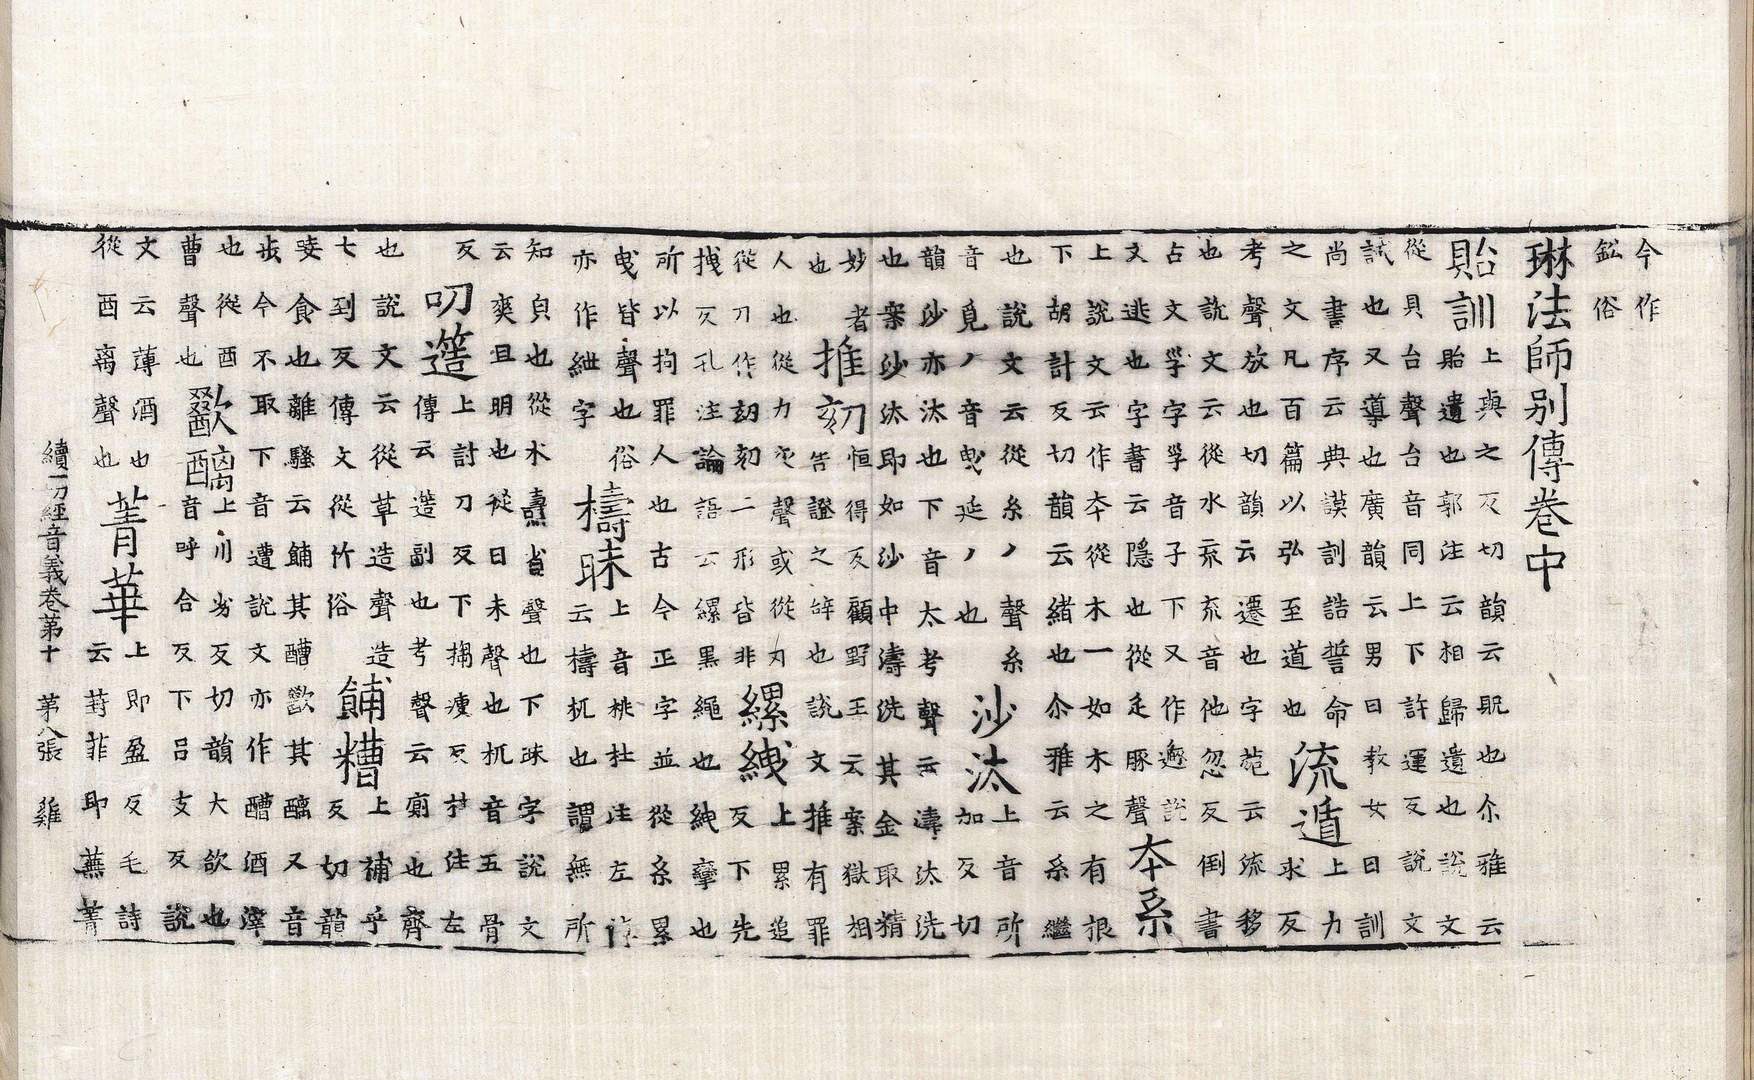 今作
鈆俗
琳法師别傳卷中
貽訓
上與之反切韻云貺也尒雅云
貽遺也郭注云相歸遺也說文
從貝台聲台音同上下許運反說文
誡也又導也廣韻云男曰教女曰訓
尚書序云典謨訓誥誓命
之文凡百篇以弘至道也
流遁
上力
求反
考聲放也切韻云遷也字菀云流移
也說文云從水㐬㐬音他忽反倒書
占文㜽字㜽音子下又作遯說
文逃也字書云隱也從辵豚聲
夲系
上說文云作夲從木一如木之有根
下胡計反切韻云緒也尒雅云系繼
也說文云從糸丿聲糸
音覓丿音曳延丿也
沙汰
上音所
加反切
韻沙亦汰也下音太考聲云濤汰洗
也案沙汰即如沙中濤洗其金取精
妙者
也
推刻
恒得反顧野王云案獄相
告證之辝也說文推有罪
人也從力聲或從刃
從刀作刻二形皆非
縲絏
上累追
反下先
拽反孔注論語云縲黑繩也絏攣也
所以拘罪人也古今正字並從糸累
曳皆聲也俗
亦作紲字
檮昧
上音桃杜注左
云檮杌也謂無所
知皃也從木壽省聲也下昧字說文
云爽且明也從日未聲也杌音五骨
反
叨簉
上討刀反下搊瘦反杜注左
傳云簉副也考聲云廁也齊
也說文云從草造聲造
七到反傳文從竹俗
餔糟
上補乎
反切韻
食也離騷云餔其醩歠其醨又音
步今不取下音遭說文亦作醩酒滓
也從酉
曹聲也
歠醨
上川劣反切韻大飲也
音呼合反下呂支反說
文云薄酒也
從酉离聲也
菁華
上即盈反毛詩
云葑菲即蕪菁
續一切經音義卷第十 第八張 雞